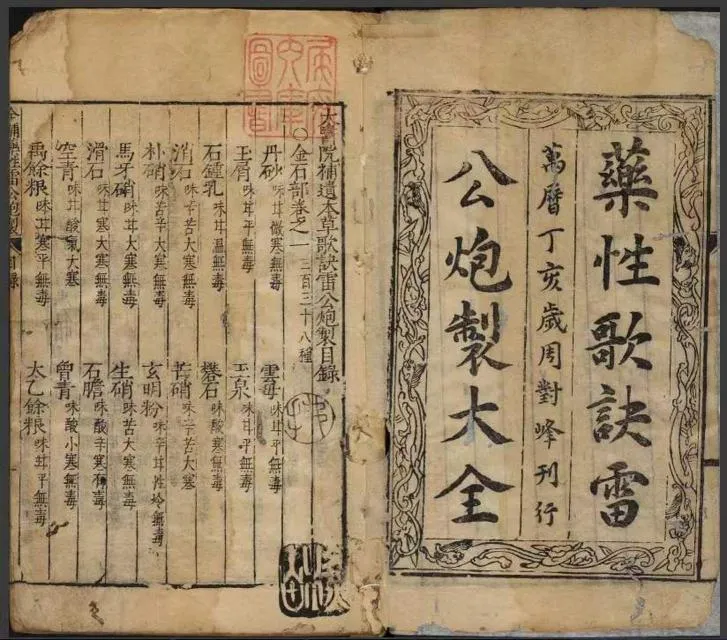 藥性歌訣雷
萬曆丁亥歲周對峰刊行
公炮製大全
太醫院補遺本草歌訣雷公炮製目錄
○金石部卷之一 三百三十八種
丹砂 味甘微寒無毒 雲母 味甘平無毒
玉屑 味甘平無毒 玉泉 味甘平無毒
石鍾乳 味甘溫無毒 礬石 味酸寒無毒
消石 味辛苦大寒無毒 芒硝 味辛苦大寒
朴硝 味苦辛大寒無毒 玄明粉 味辛甘性冷無毒
馬牙硝 味甘大寒無毒 生硝 味苦大寒無毒
滑石 味甘寒大寒無毒 石膽 味酸辛寒有毒
空青 味甘酸氣大寒 曾青 味酸小寒無毒
禹餘粮 味甘寒平無毒 太乙餘粮 味甘平無毒
目錄